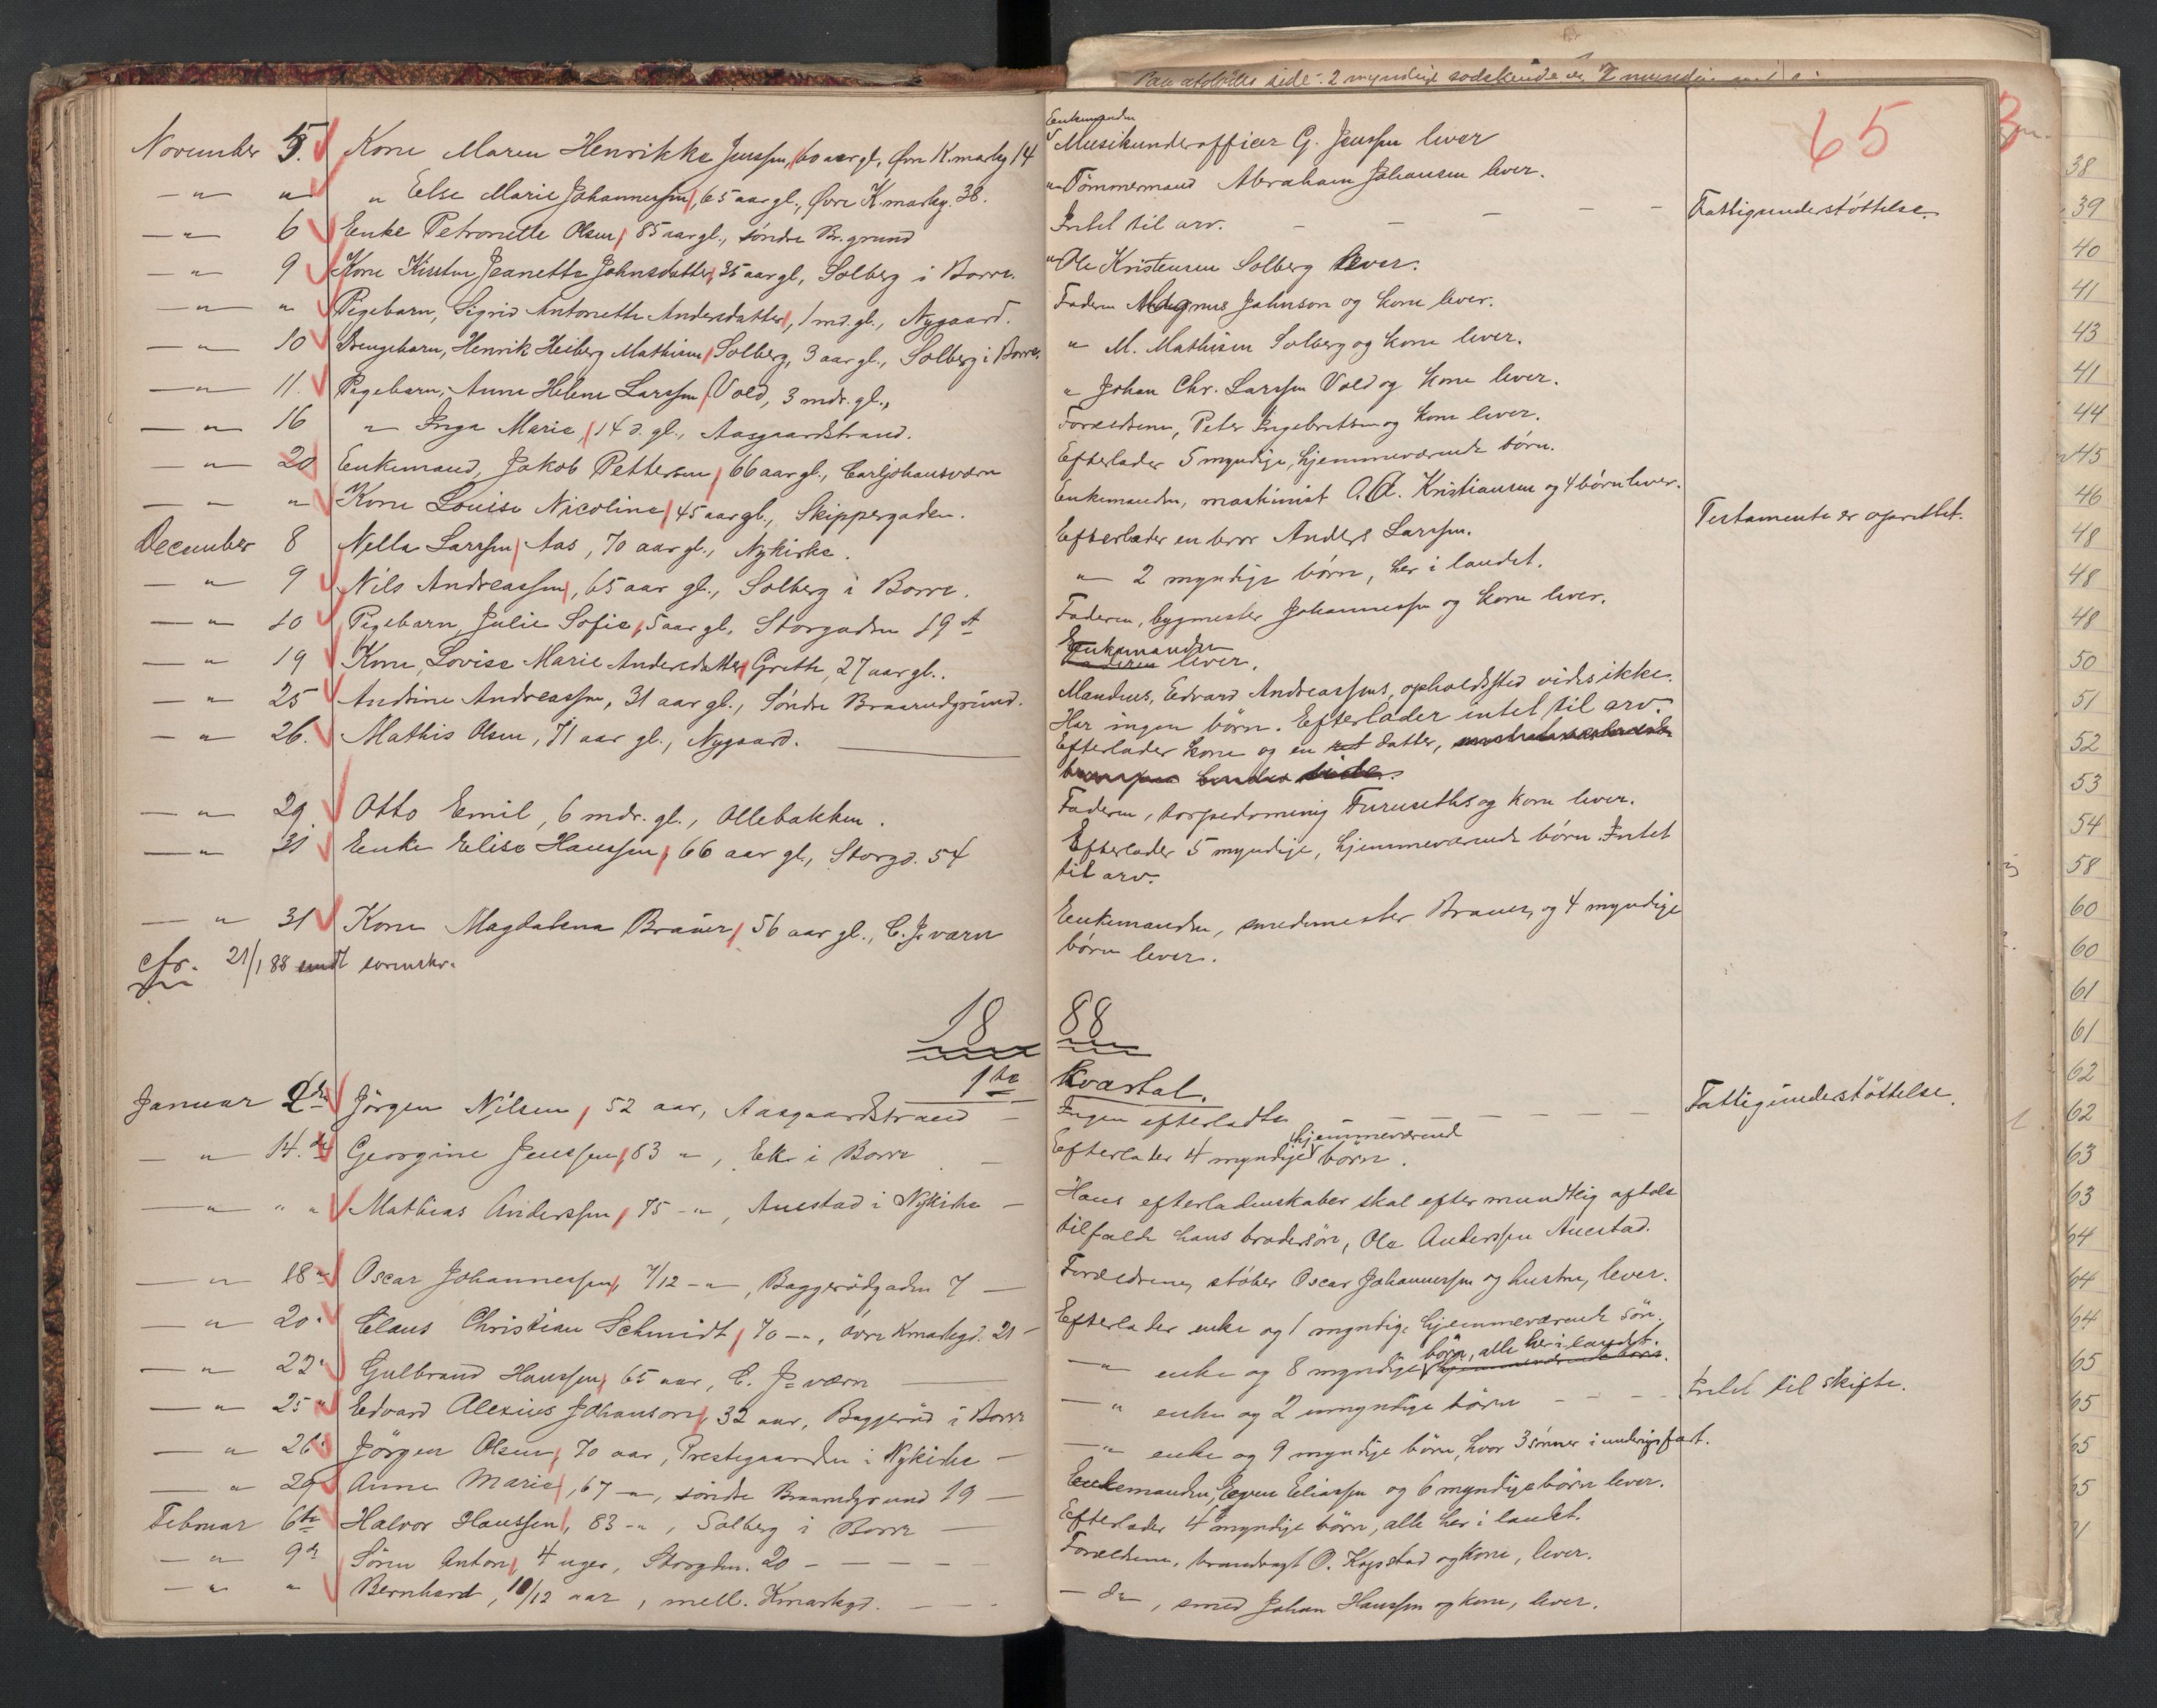 65
November 5. Kone Maren Henrikke Jenssen, 60 aar gl., Øvre K.markg 14 Enkemanden Musikunderofficer G. Jenssen lever
— " — " " Else Marie Johannessen, 65 aar gl., Øvre K.markg. 38. " Tömmermand Abraham Johansen lever.
— " — 6 Enke Petronelle Olsen, 85 aar gl., söndre Br.grund Intet til arv. — — — — Fattigunderstöttelse.
— " — 9 Kone Jeanette Johnsdatter, 35 aar gl., Solberg i Borre. " Ole Kristensen Solberg lever.
— " — " Pigebarn, Sigrid Antonette Andersdatter, 1 md. gl., Nygaard. Faderen Magnus Johnson og kone lever.
— " — 10 Drengebarn, Henrik Heiberg Mathisen Solberg, 3 aar gl., Solberg i Borre. " M. Mathisen Solberg og kone lever.
— " — 11. Pigebarn, Anne Helene Larssen Vold, 3 mdr. gl., " Johan Chr. Larssen Vold og kone lever.
— " — 16 " Inga Marie, 14 d. gl., Aasgaardstrand. Forældrene, Peter Ingebretsen og kone lever.
— " — 20 Enkemand, Jakob Pettersen, 66 aar gl., Carljohansværn Efterlader 5 myndige, hjemmeværende börn.
— " — " Kone Louise Nicoline, 45 aar gl., Skippergaden. Enkemanden, maskinist A. Kristiansen og 4 börn lever.
December 8 Nella Larssen Aas, 70 aar gl., Nykirke. Efterlader en bror Anders Larssen. Testamente er oprettet.
— " — 9 Nils Andreassen, 65 aar gl., Solberg i Borre. " 2 myndige börn, her i landet.
— " — 10 Pigebarn, Julie Sofie, 5 aar gl., Storgaden 19 A Faderen, bygmester Johannessen og kone lever.
— " — 19 Kone, Lovise Marie Andersdatter Greth, 27 aar gl.. Enkemanden Faderen lever.
— " — 25 Andrine Andreassen, 31 aar gl., Söndre Braarudgrund. Mandens, Edvard Andreassens, opholdssted vides ikke.
Har ingen börn. Efterlader intet til arv.
— " — 26. Mathis Olsen, 71 aar gl., Nygaard. Efterlader kone og en datter,
— " — 29. Otto Emil, 6 mdr. gl., Ollebakken. Faderen, torpedominig Furuseths og kone lever.
— " — 31 Enke Elise Hanssen, 66 aar gl., Storgd. 54 Efterlader 5 myndige, hjemmeværende börn. Intet
til arv.
— " — 31 Kone Magdalena Brauer, 56 aar gl., C. J. værn Enkemanden, smedmester Brauer, og 4 myndige
börn lever.
cfr. 21/1 88 sendt sorenskr.
18 88
1ste Kvartal.
Januar 2den Jörgen Nilsen, 52 aar, Aasgaardstrand — Ingen efterladte — — — — — Fattigunderstöttelse.
— " — 14.de Georgine Jenssen, 83 — " , Ek i Borre — Efterlader 4 myndige hjemmeværende börn.
— " — " " Mathias Anderssen, 75 — " , Auestad i Nykirke — Hans efterladenskaber skal efter mundtlig aftale
tilfalde hans brodersön, Ole Anderssen Auestad.
— " — 18 " Oscar Johannessen, 7/12 — " , Baggerödgaden 7 — Forældrene, stöber Oscar Johannessen og hustru, lever.
— " — 20 " Claus Christian Schmidt, 70 — " , övre Kmarkgd. 21 — Efterlader enke og 1 myndige hjemmeværende sön.
— " — 22 " Gulbrand Hanssen, 65 aar, C. J. værn — — " enke og 8 myndige börn, alle her i landet. hjemmeværende börn.
— " — 25 " Edvard Alexius Johanson, 32 aar, Baggeröd i Borre — " enke og 2 umyndige börn — — — Intet til skifte.
— " — 26 " Jörgen Olsen, 70 aar, Prestegaarden i Nykirke — — " enke og 9 myndige börn, hvor 3 sönner i udenrigsfart.
— " — 29 Anne Marie, 67 — " , söndre Braarudgrund 19 — Enkemanden, Even Eliassen og 6 myndige börn lever.
Februar 6te Halvor Hanssen, 83 — " , Solberg i Borre — Efterlader 4 myndige börn, alle her i landet.
— " — 9de Sören Anton, 4 uger, Storgdn. 20 — — — Forældrene, brandvagt O. Kopstad og kone, lever.
— " — " Bernhard, 10/12 aar, mell. Kmarkgd. — — — do — , smed Johan Hanssen og kone, lever.
38
39
40
41
43
41
44
45
46
48
48
48
50
51
52
53
54
58
60
60
61
61
62
62
63
63
64
64
64
65
65
65
65